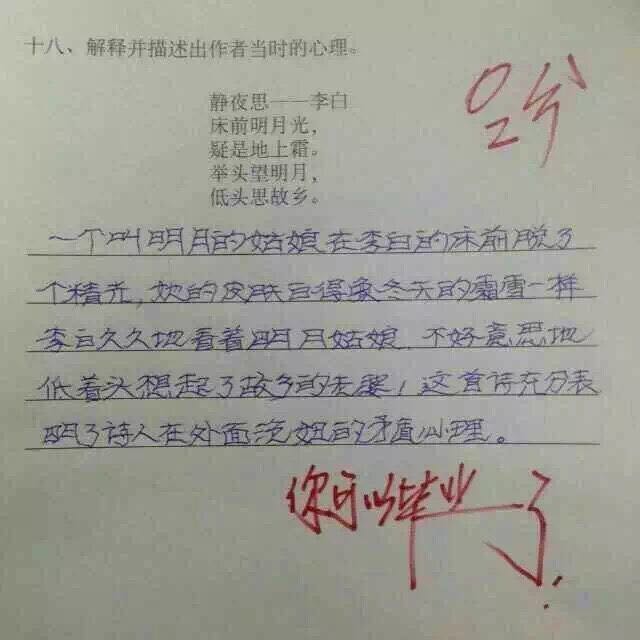 十八、解释并描述出作者当时的心理。
0分
静夜思——李白
床前明月光，
疑是地上霜。
举头望明月，
低头思故乡。
一个叫明月的姑娘在李白的床前脱了
个精光，她的皮肤白得象冬天的霜雪一样
李白久久地看着明月姑娘，不好意思地
低着头想起了故乡的老婆！这首诗充分表
明了诗人在外面泡妞的矛盾心理。
你可以毕业了！